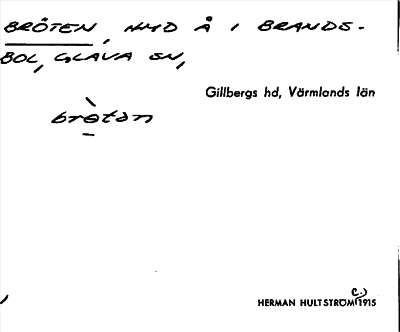 BRÖTEN, HMD Å I BRANDS-
BOL, GLAVA SN,
Gillbergs hd, Värmlands län
bròtan
HERMAN HULTSTRÖM (C.) 1915